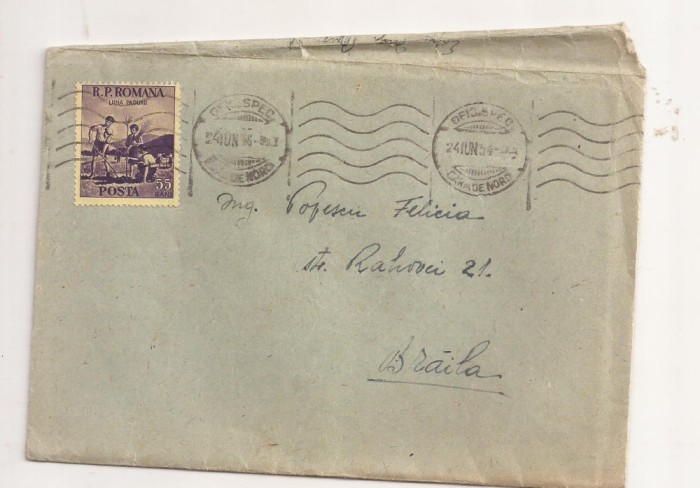 R.P. ROMANA
LUNA PADURII
POSTA 55
BANI
OFIC. SPEC.
24 IUN 54
GARA DE NORD
OFIC. SPEC.
24 IUN 54
GARA DE NORD
Ing. Popescu Felicia
str. Rahovei 21.
Brăila